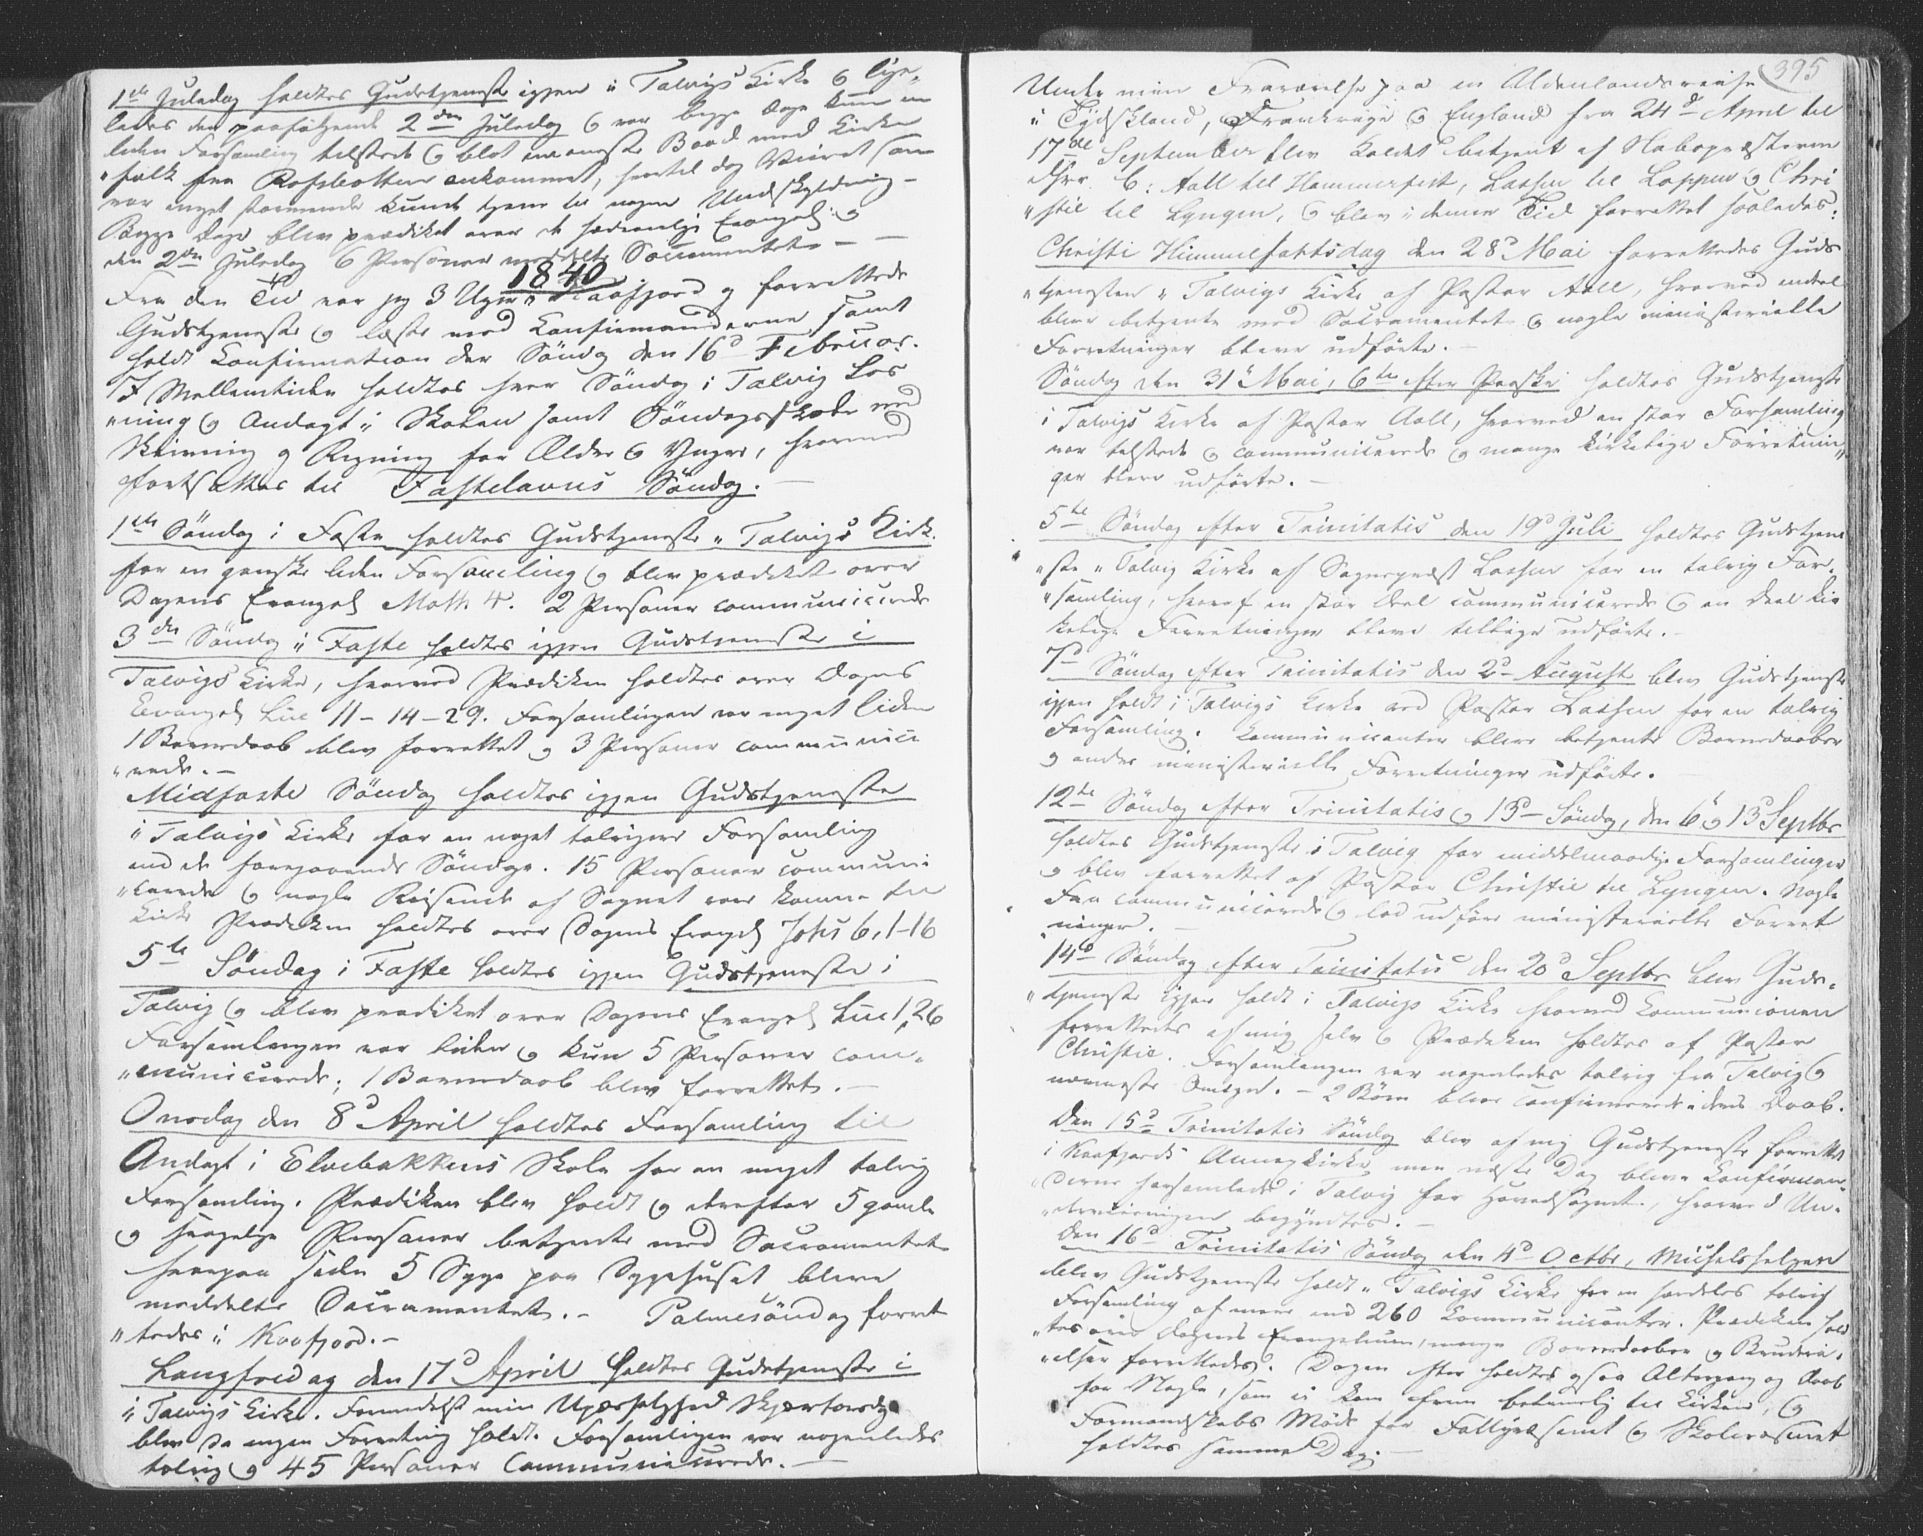 1ste Juledag holdtes Gudstjeneste igjen i Talvigs Kirke & lige,
ledes den paafølgende 2den Juledag & var begge Dage kun en
liden Forsamling tilstede & blot en eneste Baad med Kirke
"folk fra Rafsbotten ankommet, hvortil dog Veiret som
var meget stormende kunde tjene til nogen Undskyldning –
Begge Dage blev prædiket over de sædvanlige Evangel: &
den 2den Juledag 6 Personer meddelte Sacramentet –
1840
Fra den Tid var jeg 3 Uger i Kaafjord og forrettede
Gudstjeneste & læste med Konfirmanderne samt
holdt Konfirmation der Söndg den 16d Februar.
I Mellemtiden holdtes hver Söndag i Talvig Læs
"ning & Andagt i Skolen samt Söndagsskole med
Skrivning og Regning for Ældre & Yngre, hvormed
fortsattes til Fastelavns Söndag. –
1ste Söndag i Faste holdtes Gudstjeneste i Talvigs Kirk.
for en ganske liden Forsamling & blev prædiket over
Dagens Evangel Math 4. 2 Personer communicerede
3die Söndg i Faste holdtes igjen Gudstjeneste i
Talvigs Kirke, hvorved Prædiken holdtes over Dagens
Evangel Luc 11-14-29. Forsamlingen var meget liden
1 Barnedaab blev forrettet og 3 Personer communice
"rede. –
Midfaste Söndag holdtes igjen Gudstjeneste
i Talvigs Kirke for en noget talrigere Forsamling
end de foregaaende Söndage. 15 Personer communi
"cerede & nogle Reisende af Sognet vare komne til
Kirke Prædiken holdtes over Dagens Evangel Johs 6, 1-16
5te Söndag i Faste holdtes igjen Gudstjeneste i
Talvig & blev prædiket over Dagens Evangel Luc 1, 26
Forsamlingen var liden & kun 5 Personer com=
"municerede; 1 Barnedaab blev forrettet. –
Onsdag den 8d April holdtes Forsamling til
Andagt i Elvebakkens Skole for en meget talrig
Forsamling. Prædiken blev holdt & derefter 5 gamle
& svagelige Personer betjente med Sacramentet
hvorpaa siden 5 Syge paa Sygehuset bleve
meddelte Sacramentet. – Palmesöndag forret
"tedes i Kaafjord. –
Langfredag den 17d April holdtes Gudstjeneste i
i Talvigs Kirke. Formedelst min Upasselighed Skjærtorsdg
blev da ingen Forretning holdt. Forsamlingen var nogenledes
talrig & 45 Personer Communicerede. –
395
Under min Fraværelse paa en Udenlandsreise
i Tydskland, Frankrige & England fra 24d April til
17de September blev Kaldet betjent af Nabopræsterne
dhrr. C: Aall til Hammerfest, Lassen til Loppen & Chri
"stie til Lyngen, & blev i denne Tid forrettet saaledes:
Christi Himmelfartsdag den 28d Mai forrettedes Guds
"tjenesten i Talvigs Kirke af Pastor Aall, hvorved endeel
bleve betjente med Sacramentet & nogle ministerielle
Forretninger bleve udförte. –
Söndag den 31d Mai, 6te efter Paaske holdtes Gudstjeneste
i Talvigs Kirke af Pastor Aall, hvorved en stor Forsamling
var tilstede & communicerede & mange kirkelige Forretnin"
ger bleve udförte. –
5te Söndag efter Trinitatis den 19d Juli holdtes Gudstjene
"ste i Talvig Kirke af Sognepræst Lassen for en talrig For,
"samling, hvoraf en stor Deel communicerede & en Deel kir
kelige Forretninger bleve tillige udförte. –
7d Söndag efter Trinitatis den 2d August blev Gudstjeneste
igjen holdt i Talvigs Kirke ved Pastor Lassen for en talrig
Forsamling. Kommunicanter bleve betjente Barnedaaber
& andre ministerielle Forretninger udförte.
12te Söndag efter Trinitatis & 13d Söndag, den 6 & 13d Septbr
holdtes Gudstjeneste i Talvig for middelmaadige Forsamlinger
& blev forrettet af Pastor Christie til Lyngen. Nogle
Faa communicerede & lod udföre ministerielle Forret
"ninger. –
14d Söndag efter Trinitatis den 20d Septbr blev Guds=
"tjeneste igjen holdt i Talvigs Kirke hvorved Kommunionen
forrettedes af mig selv & Prædiken holdtes af Pastor
Christie. Forsamlingen var nogenledes talrig fra Talvig &
nærmeste Omegn. – 2 Börn bleve confirmerede i deres Daab.
Den 15d Trinitatis Söndag blev af mig Gudstjeneste forrettet
i Kaafjords Annexkirke, men næste Dag bleve Konfirman=
"derne forsamlede i Talvig for Hovedsognet, hvorved Un=
"derviisningen begyndtes. –
Den 16d Trinitatis Söndag den 4d Octbr, Mikelshelgen
blev Gudstjeneste holdt i Talvigs Kirke for en særdeles talrig
Forsamling af mere end 260 Kommunicanter. Prædiken hold
"tes over Dagens Evangelium, mange Barnedaaber & Brudevi=
"elser forrettedes. Dagen efter holdtes ogsaa Altergang og Daab
for Nogle, som ei kom frem betimelig til Kirken, &
Formandskabs Møde for Fattigvæsenet & Skolevæsenet
holdtes samme Dag. –